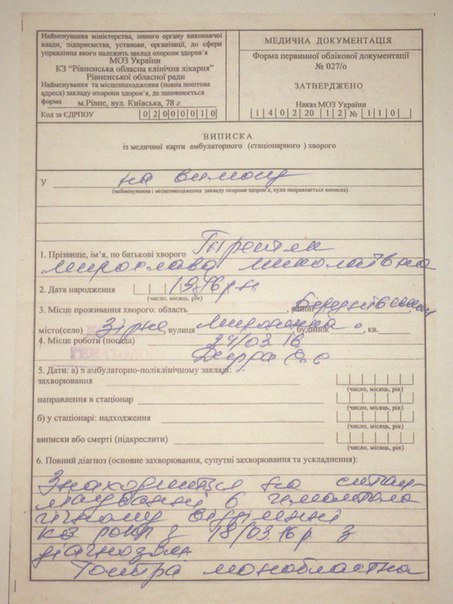 Найменування міністерства, іншого органу виконавчої
влади, підприємства, установи, організації, до сфери
управління якого належить заклад охорони здоров'я
МОЗ України
КЗ "Рівненська обласна клінічна лікарня"
Рівненської обласної ради
Найменування та місцезнаходження (повна поштова
адреса) закладу охорони здоров'я, де заповнюється
форма м.Рівне, вул. Київська, 78 г
Код за ЄДРПОУ 02000010
МЕДИЧНА ДОКУМЕНТАЦІЯ
Форма первинної облікової документації
№ 027/о
ЗАТВЕРДЖЕНО
Наказ МОЗ України
14022012 № 110
ВИПИСКА
із медичної карти амбулаторного (стаціонарного) хворого
У на вимогу
(найменування і місцезнаходження закладу охорони здоров'я, куди направляється виписка)
1. Прізвище, ім'я, по батькові хворого
Мирослава Миколаївна
2. Дата народження 1996 рн
3. Місце проживання хворого: область район
місто(село) Зірне вулиця будинок , кв.
4. Місце роботи (посада) 24/03.16
5. Дати: а) в амбулаторно-поліклінічному закладі:
захворювання
(число, місяць, рік)
направлення в стаціонар
(число, місяць, рік)
б) у стаціонарі: надходження
(число, місяць, рік)
виписки або смерті (підкреслити)
(число, місяць, рік)
6. Повний діагноз (основне захворювання, супутні захворювання та ускладнення):
Знаходиться на стаціо
лікуванні в гематоло
гічному відділенні
КЗ РОКЛ з 18/03.16р з
діагнозом
Гостра монобластна